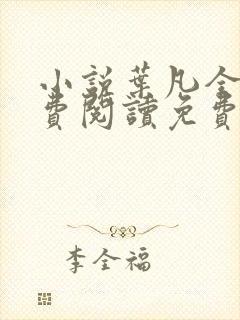 小說葉凡全
費閱讀免費
李全福